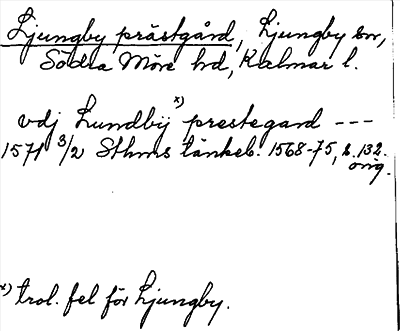 Ljungby prästgård, Ljungby sn,
Södra Möre hd, Kalmar l.
vdj Lundbÿ x) prestegard ---
1571 3/2 Sthms tänkeb. 1568-75, s. 132.
orig.
x) trol. fel för Ljungby.